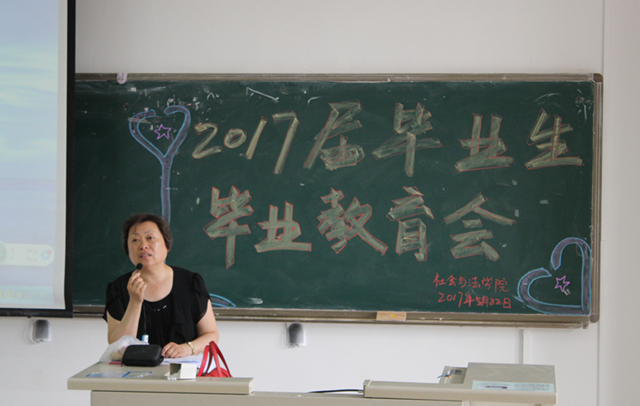 2017届毕业生
毕业教育会
社会与法学院
2017年5月22日